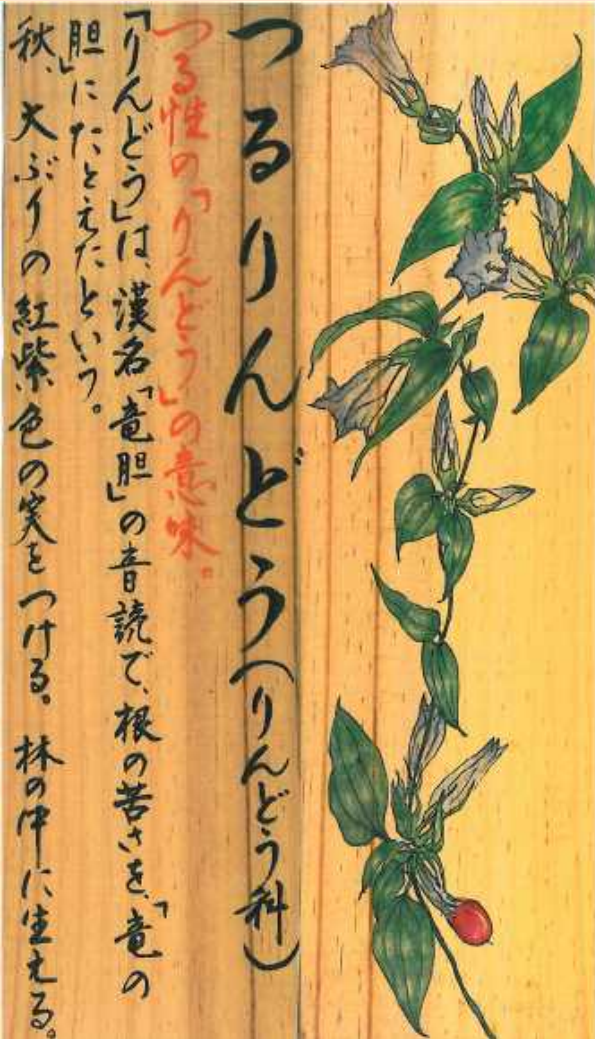 つるりんどう(りんどう科)
つる性の「りんどう」の意味。
「りんどう」は、漢名「竜胆」の音読で、根の苦さを、「竜の
胆」にたとえたという。
秋、大ぶりの紅紫色の実をつける。林の中に生える。